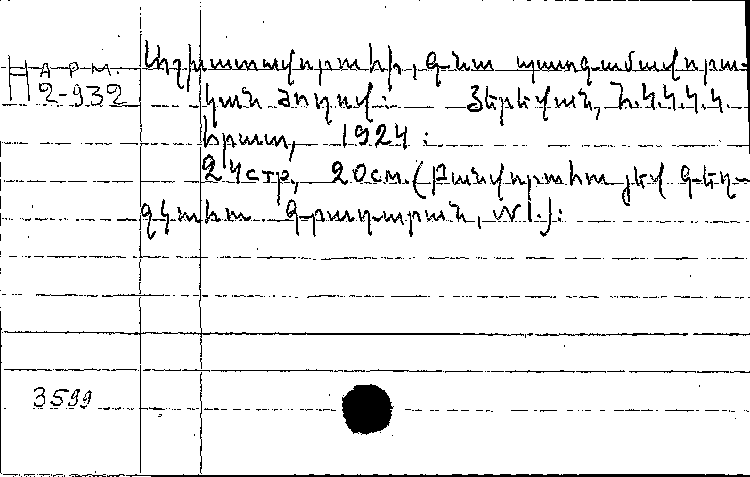 Н АРМ.
2-932
Աշխատավորուհի, գնա պատգամավորա-
կան ժողով: Յերեվան, Հ.Կ.Կ.Կ.Կ.
հրատ, 1924:
24стр, 20см. (Բանվորուհու յեվ գեղ-
ջկուհու գրադարան, №1.):
3599